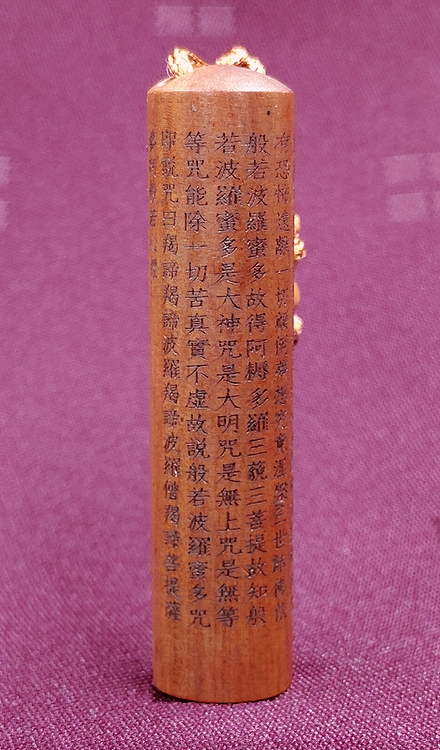 有恐怖遠離一切顛倒夢想究竟涅槃三世諸佛依
般若波羅蜜多故得阿耨多羅三藐三菩提故知般
若波羅蜜多是大神咒是大明咒是無上咒是無等
等咒能除一切苦真實不虛故說般若波羅蜜多咒
即說咒曰羯諦羯諦波羅羯諦波羅僧羯諦菩提薩